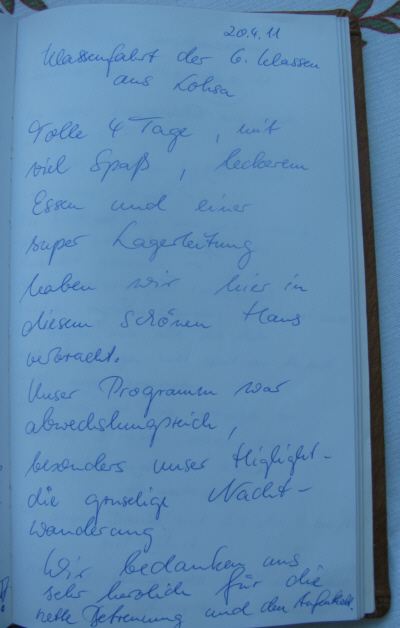 20.4.11
Klassenfahrt der 6. Klassen
aus Lohsa
Tolle 4 Tage, mit
viel Spaß, leckerem
Essen und einer
super Lagerleitung
haben wir hier in
diesem schönen Haus
verbracht.
Unser Programm war
abwechslungsreich,
besonders unser Higlight-
die gruselige Nacht-
wanderung.
Wir bedanken uns
sehr herzlich für die
nette Betreuung und den Aufenthalt.